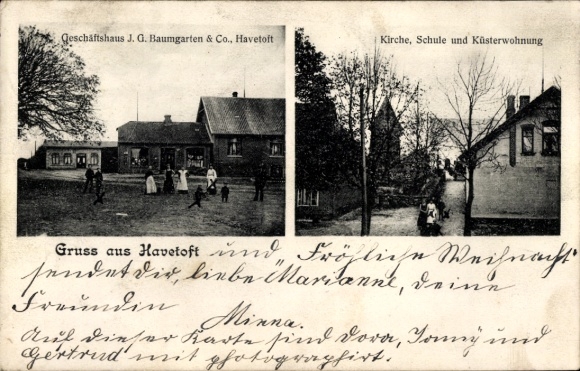 Geschäftshaus J. G. Baumgarten & Co., Havetoft
Kirche, Schule und Küsterwohnung
Gruss aus Havetoft und Fröhliche Weihnacht
sendet Dir, liebe Marianne, deine
Freundin
Minna.
Auf dieser Karte sind Dora, Tonny und
Gertrud mit photographirt.